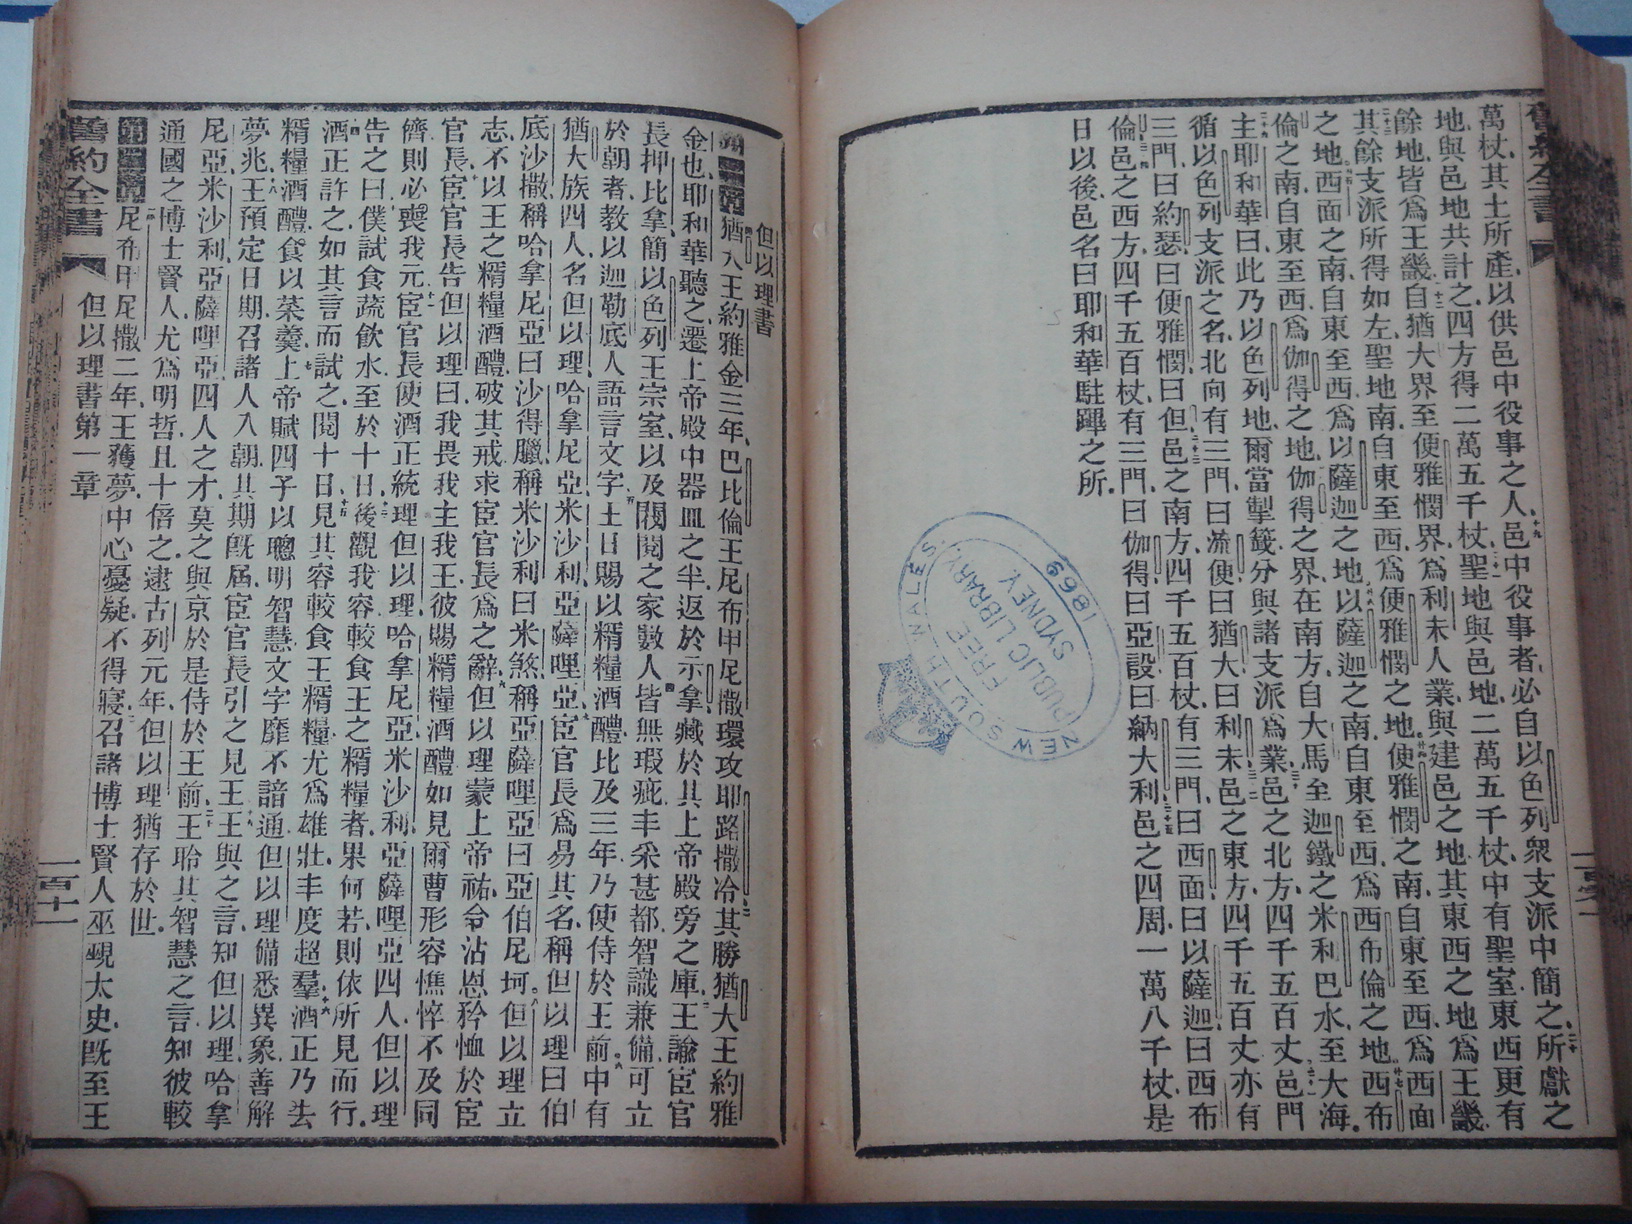 舊約全書
萬杖其土所產以供邑中役事之人邑中役事者必自以色列衆支派中簡之所獻之
地與邑地共計之四方得二萬五千杖聖地與邑地二萬五千杖中有聖室東西更有
餘地皆爲王畿自猶大界至便雅憫界爲利未人業與建邑之地其東西之地爲王畿
其餘支派所得如左聖地南自東至西爲便雅憫之地便雅憫之南自東至西爲西面
之地西面之南自東至西爲以薩迦之地以薩迦之南自東至西爲西布倫之地西布
倫之南自東至西爲伽得之地伽得之界在南方自大馬至迦鐵之米利巴水至大海
主耶和華曰此乃以色列地爾當掣籤分與諸支派爲業邑之北方四千五百丈邑門
循以色列支派之名北向有三門曰流便曰猶大曰利未邑之東方四千五百丈亦有
三門曰約瑟曰便雅憫曰但邑之南方四千五百杖有三門曰西面曰以薩迦曰西布
倫邑之西方四千五百杖有三門曰伽得曰亞設曰納大利邑之四周一萬八千杖是
日以後邑名曰耶和華駐蹕之所
NEW SOUTH WALES
FREE
PUBLIC LIBRARY
SYDNEY
1869
但以理書
第一章 猶大王約雅金三年巴比倫王尼布甲尼撒環攻耶路撒冷其勝猶大王約雅
金也耶和華聽之遷上帝殿中器皿之半返於示拿藏於其上帝殿旁之庫王諭宦官
長押比拿簡以色列王宗室以及閥閱之家數人皆無瑕疵丰采甚都智識兼備可立
於朝者教以迦勒底人語言文字王日賜以糈糧酒醴比及三年乃使侍於王前中有
猶大族四人名但以理哈拿尼亞米沙利亞薩哩亞宦官長爲易其名稱但以理曰伯
底沙撒稱哈拿尼亞曰沙得臘稱米沙利曰米煞稱亞薩哩亞曰亞伯尼坷但以理立
志不以王之糈糧酒醴破其戒求宦官長爲之辭但以理蒙上帝祐令沾恩矜恤於宦
官長宦官長告但以理曰我畏我主我王彼賜糈糧酒醴如見爾曹形容憔悴不及同
儕則必喪我元宦官長使酒正統理但以理哈拿尼亞米沙利亞薩哩亞四人但以理
告之曰僕試食蔬飲水至於十日後觀我容較食王之糈糧者果何若則依所見而行
酒正許之如其言而試之閱十日見其容較食王糈糧尤爲雄壯丰度超羣酒正乃去
糈糧酒醴食以菜羹上帝賦四子以聰明智慧文字靡不諳通但以理備悉異象善解
夢兆王預定日期召諸人入朝其期旣屆宦官長引之見王王與之言知但以理哈拿
尼亞米沙利亞薩哩亞四人之才莫之與京於是侍於王前王聆其智慧之言知彼較
通國之博士賢人尤爲明哲且十倍之逮古列元年但以理猶存於世
第二章 尼布甲尼撒二年王獲夢中心憂疑不得寢召諸博士賢人巫覡太史旣至王
舊約全書 但以理書第一章 一百十一